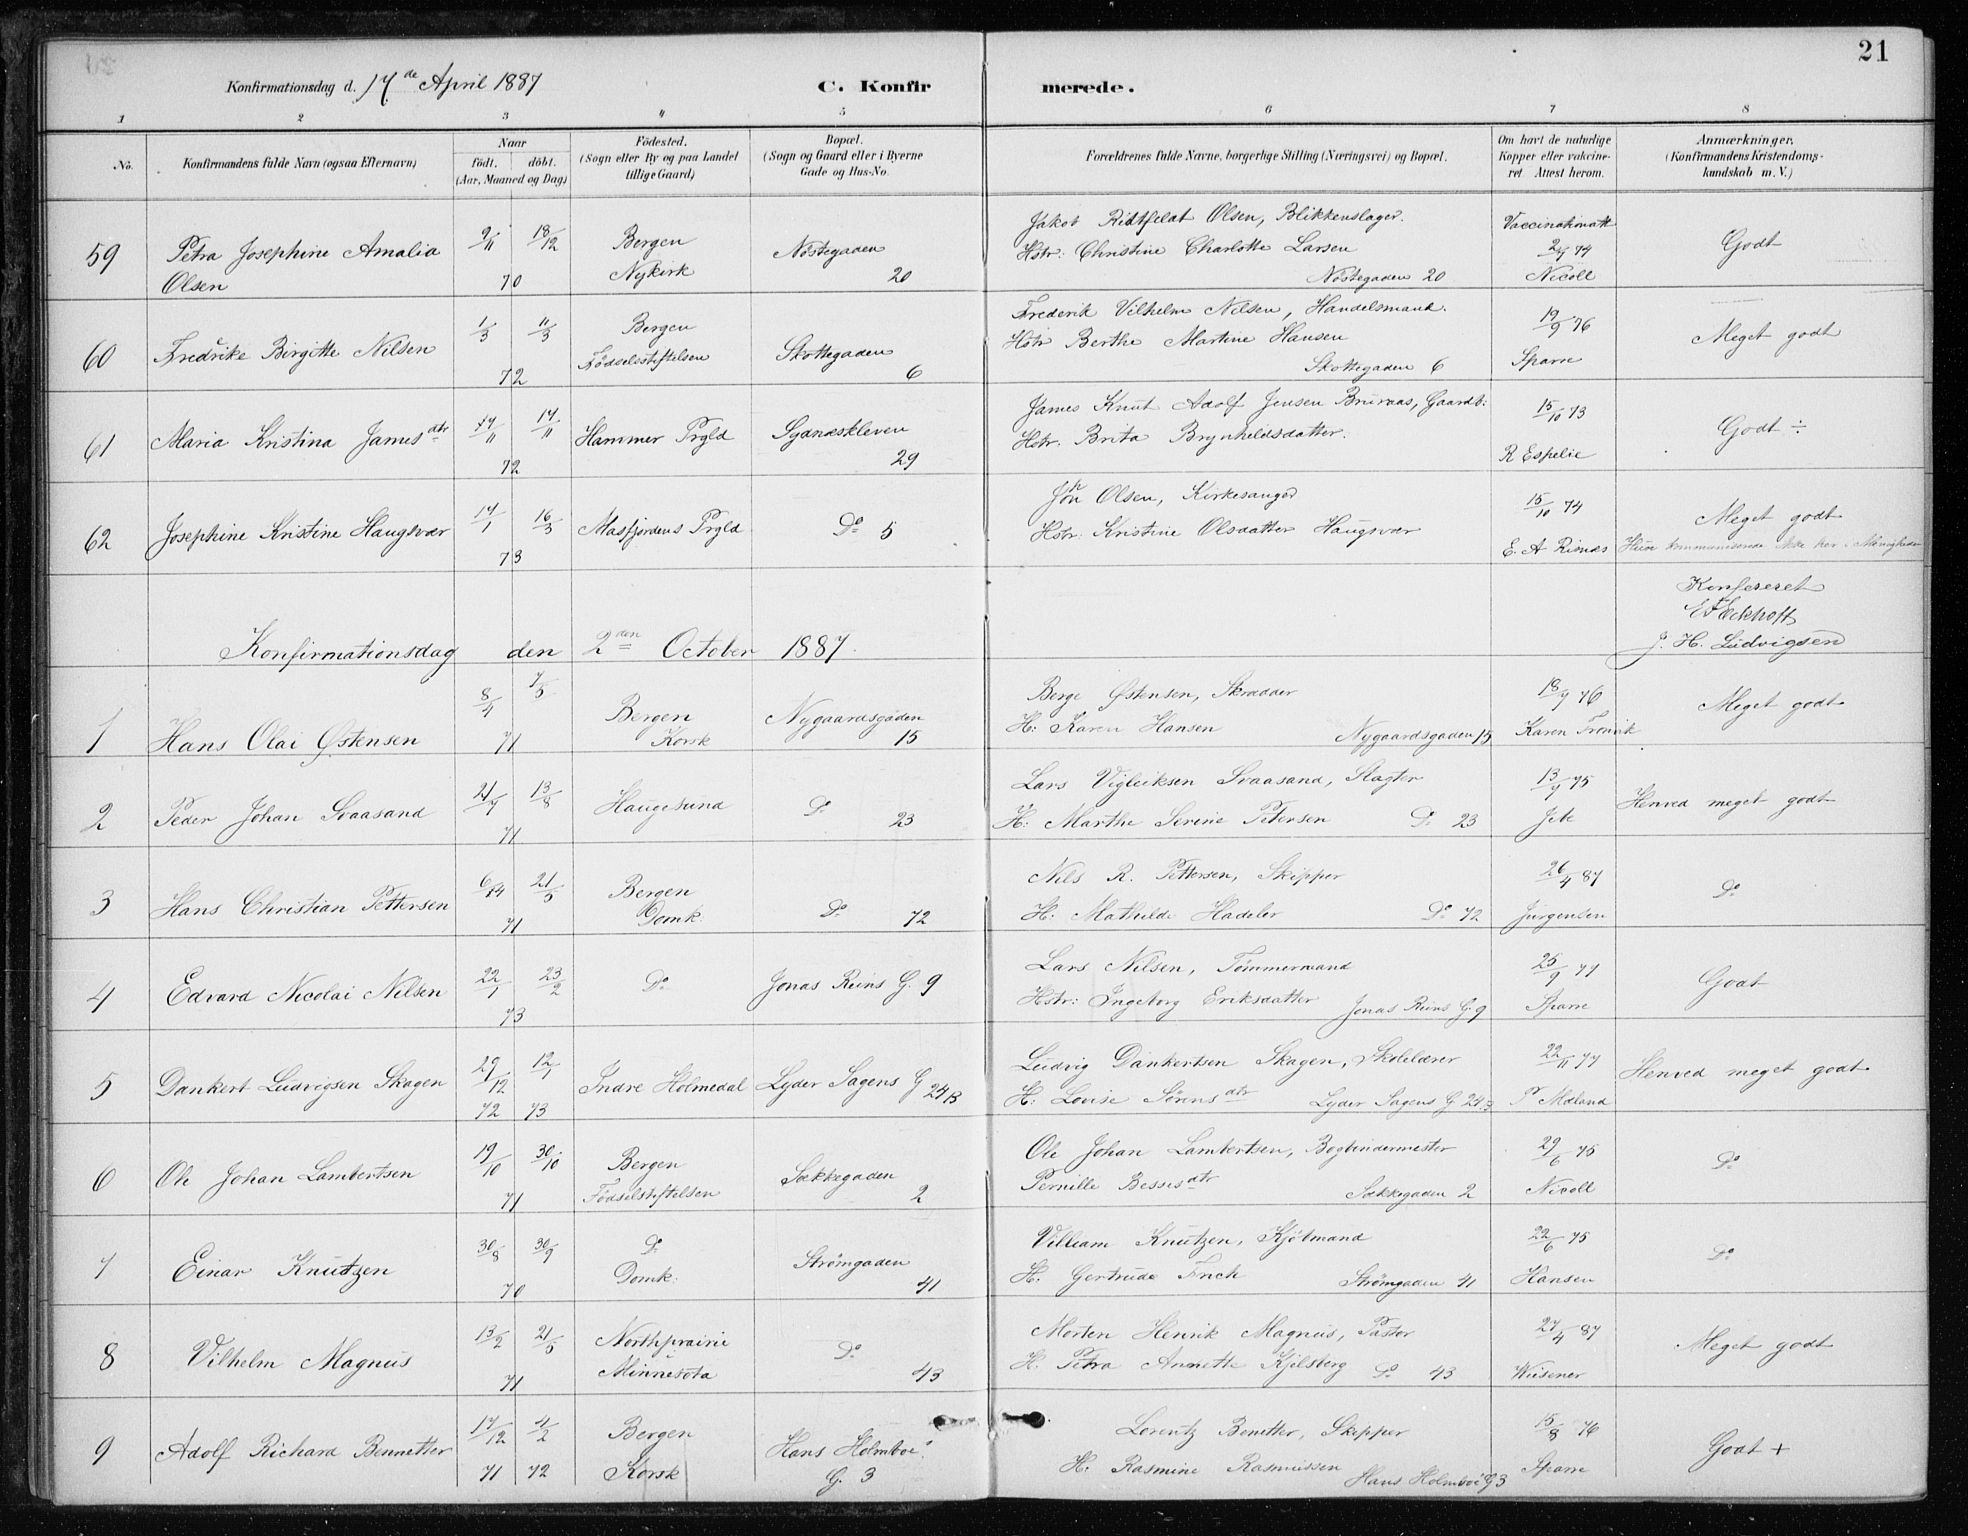 21
Konfirmationsdag d. 17de April 1887
C. Konfirmerede.
1 2 3 4 5 6 7 8
No. Konfirmandens fulde Navn (ogsaa Efternavn) Naar født. døbt. (Aar, Maaned og Dag) Fødested. (Sogn eller By og paa Landet tillige Gaard) Bopæl. (Sogn og Gaard eller i Byerne Gade og Hus-No. Forældrenes fulde Navne, borgerlige Stilling (Næringsvei) og Bopæl. Om havt de naturlige Kopper eller vakcineret. Attest herom. Anmærkninger. (Konfirmandens Kristendomskundskab m. V.)
59 Petra Josephine Amalia 9/11 18/12 Bergen Nöstegaden Jakob Olsen, Blikkenslager. Godt
Olsen 70 Nykirk 20 Hstr: Christine Charlotte Larsen
Nöstegaden 20 Nicoll
60 Fredrike Birgitte Nilsen 1/3 11/3 Bergen Skottegaden Frederik Vilhelm Nilsen, Handelsmand. 19/9 76 Meget godt
72 Födselsstiftelsen 6 Hstr Berthe Martine Hansen
Skottegaden 6 Sparre
61 Maria Kristina Jamesdtr 17/11 72 Hammer Prgld Sydnæskleven 29 James Knut Adolf Jensen Bruraas, Gaardb: 15/10 73 Godt ÷
Hstr. Brita Brynheldsdatter. R Espelie
62 Josephine Kristine Haugsvær 14/1 16/3 73 Masfjordens Prgld Do 5 Olsen, Kirkesanger 15/10 74 Meget godt
Hstr: Kristine Olsdatter Haugsvær E. A Risnes
Konfereret
J. H. Ludvigsen
Konfirmationsdag den 2den October 1887.
1 Hans Olai Østensen 8/4 7/5 71 Bergen Korsk Nygaardsgaden 15 Berge Østensen, Skrædder 18/9 76 Meget godt
H: Karen Hansen Nygaardsgaden 15 Karen
2 Peder Johan Svaasand 21/7 13/8 71 Haugesund Do 23 Lars Vigleiksen Svaasand, Slagter 13/9 75 Henved meget godt
H: Marthe Serine Petersen Do 23
3 Hans Christian Pettersen 21/5 71 Bergen Domk. Do 72 Nils R. Pettersen, Skipper 26/4 87 Do
H: Mathilde Hadeler Do 72 Jürgensen
4 Edvard Nicolai Nilsen 22/1 23/2 73 Do Jonas Reins G. 9 Lars Nilsen, Tømmermand 25/9 77 Godt
Hstr: Ingeborg Eriksdatter Jonas Reins G. 9 Sparre
5 Dankert Ludvigsen Skagen 29/12 72 12/1 73 Indre Holmedal Lyder Sagens G 24B Ludvig Dankertsen Skagen, Skolelærer 22/11 77 Henved meget godt
H: Lovise Sørensdtr Lyder Sagens G 24B P Mæland
6 Ole Johan Lambertsen 19/10 30/10 71 Bergen Födselsstiftelsen Sækkegaden 2 Ole Johan Lambertsen, Bogbindermester 29/6 75 Do
Pernille Bessesdtr Sækkegaden 2 Nicoll
7 Einar Knutzen 30/8 30/9 70 Do Domk: Strømgaden 41 Villiam Knutzen, Kjølmand 22/6 75 Do
H. Gertrude Frich Strømgaden 41 Hansen
8 Vilhelm Magnus 13/2 21/5 71 Northprairie Minnesota Do 43 Morten Henrik Magnus, Pastor 27/4 87 Meget godt
H. Petra Annette Kjelsberg Do 43 Wiesener
9 Adolf Richard Bennetter 17/12 71 4/2 72 Bergen Korsk Hans Holmboes G. 3 Lorentz Benetter, Skipper 15/8 76 Godt +
H. Rasmine Rasmussen Hans Holmboe G 3 Sparre